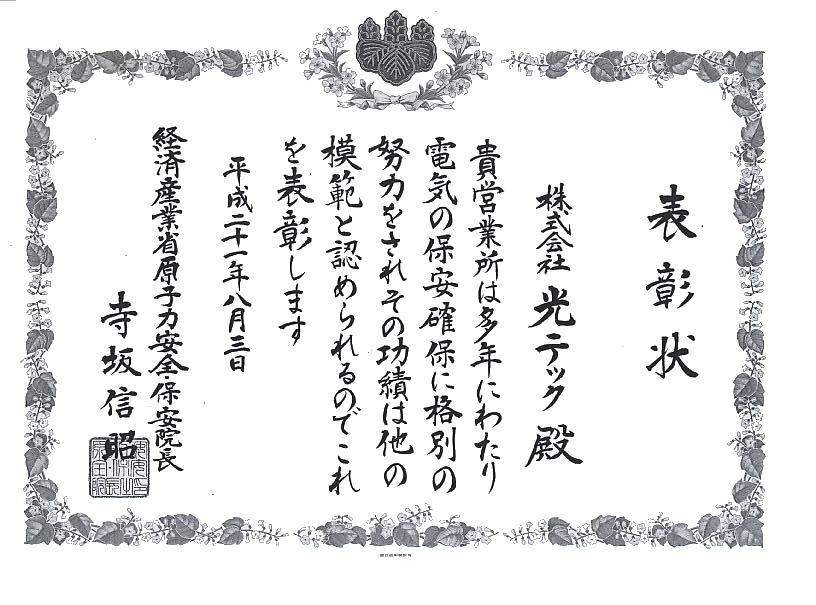 表彰状
株式会社 光テック 殿
貴営業所は多年にわたり
電気の保安確保に格別の
努力をされその功績は他の
模範と認められるのでこれ
を表彰します
平成二十一年八月三日
経済産業省原子力安全・保安院長
寺坂信昭